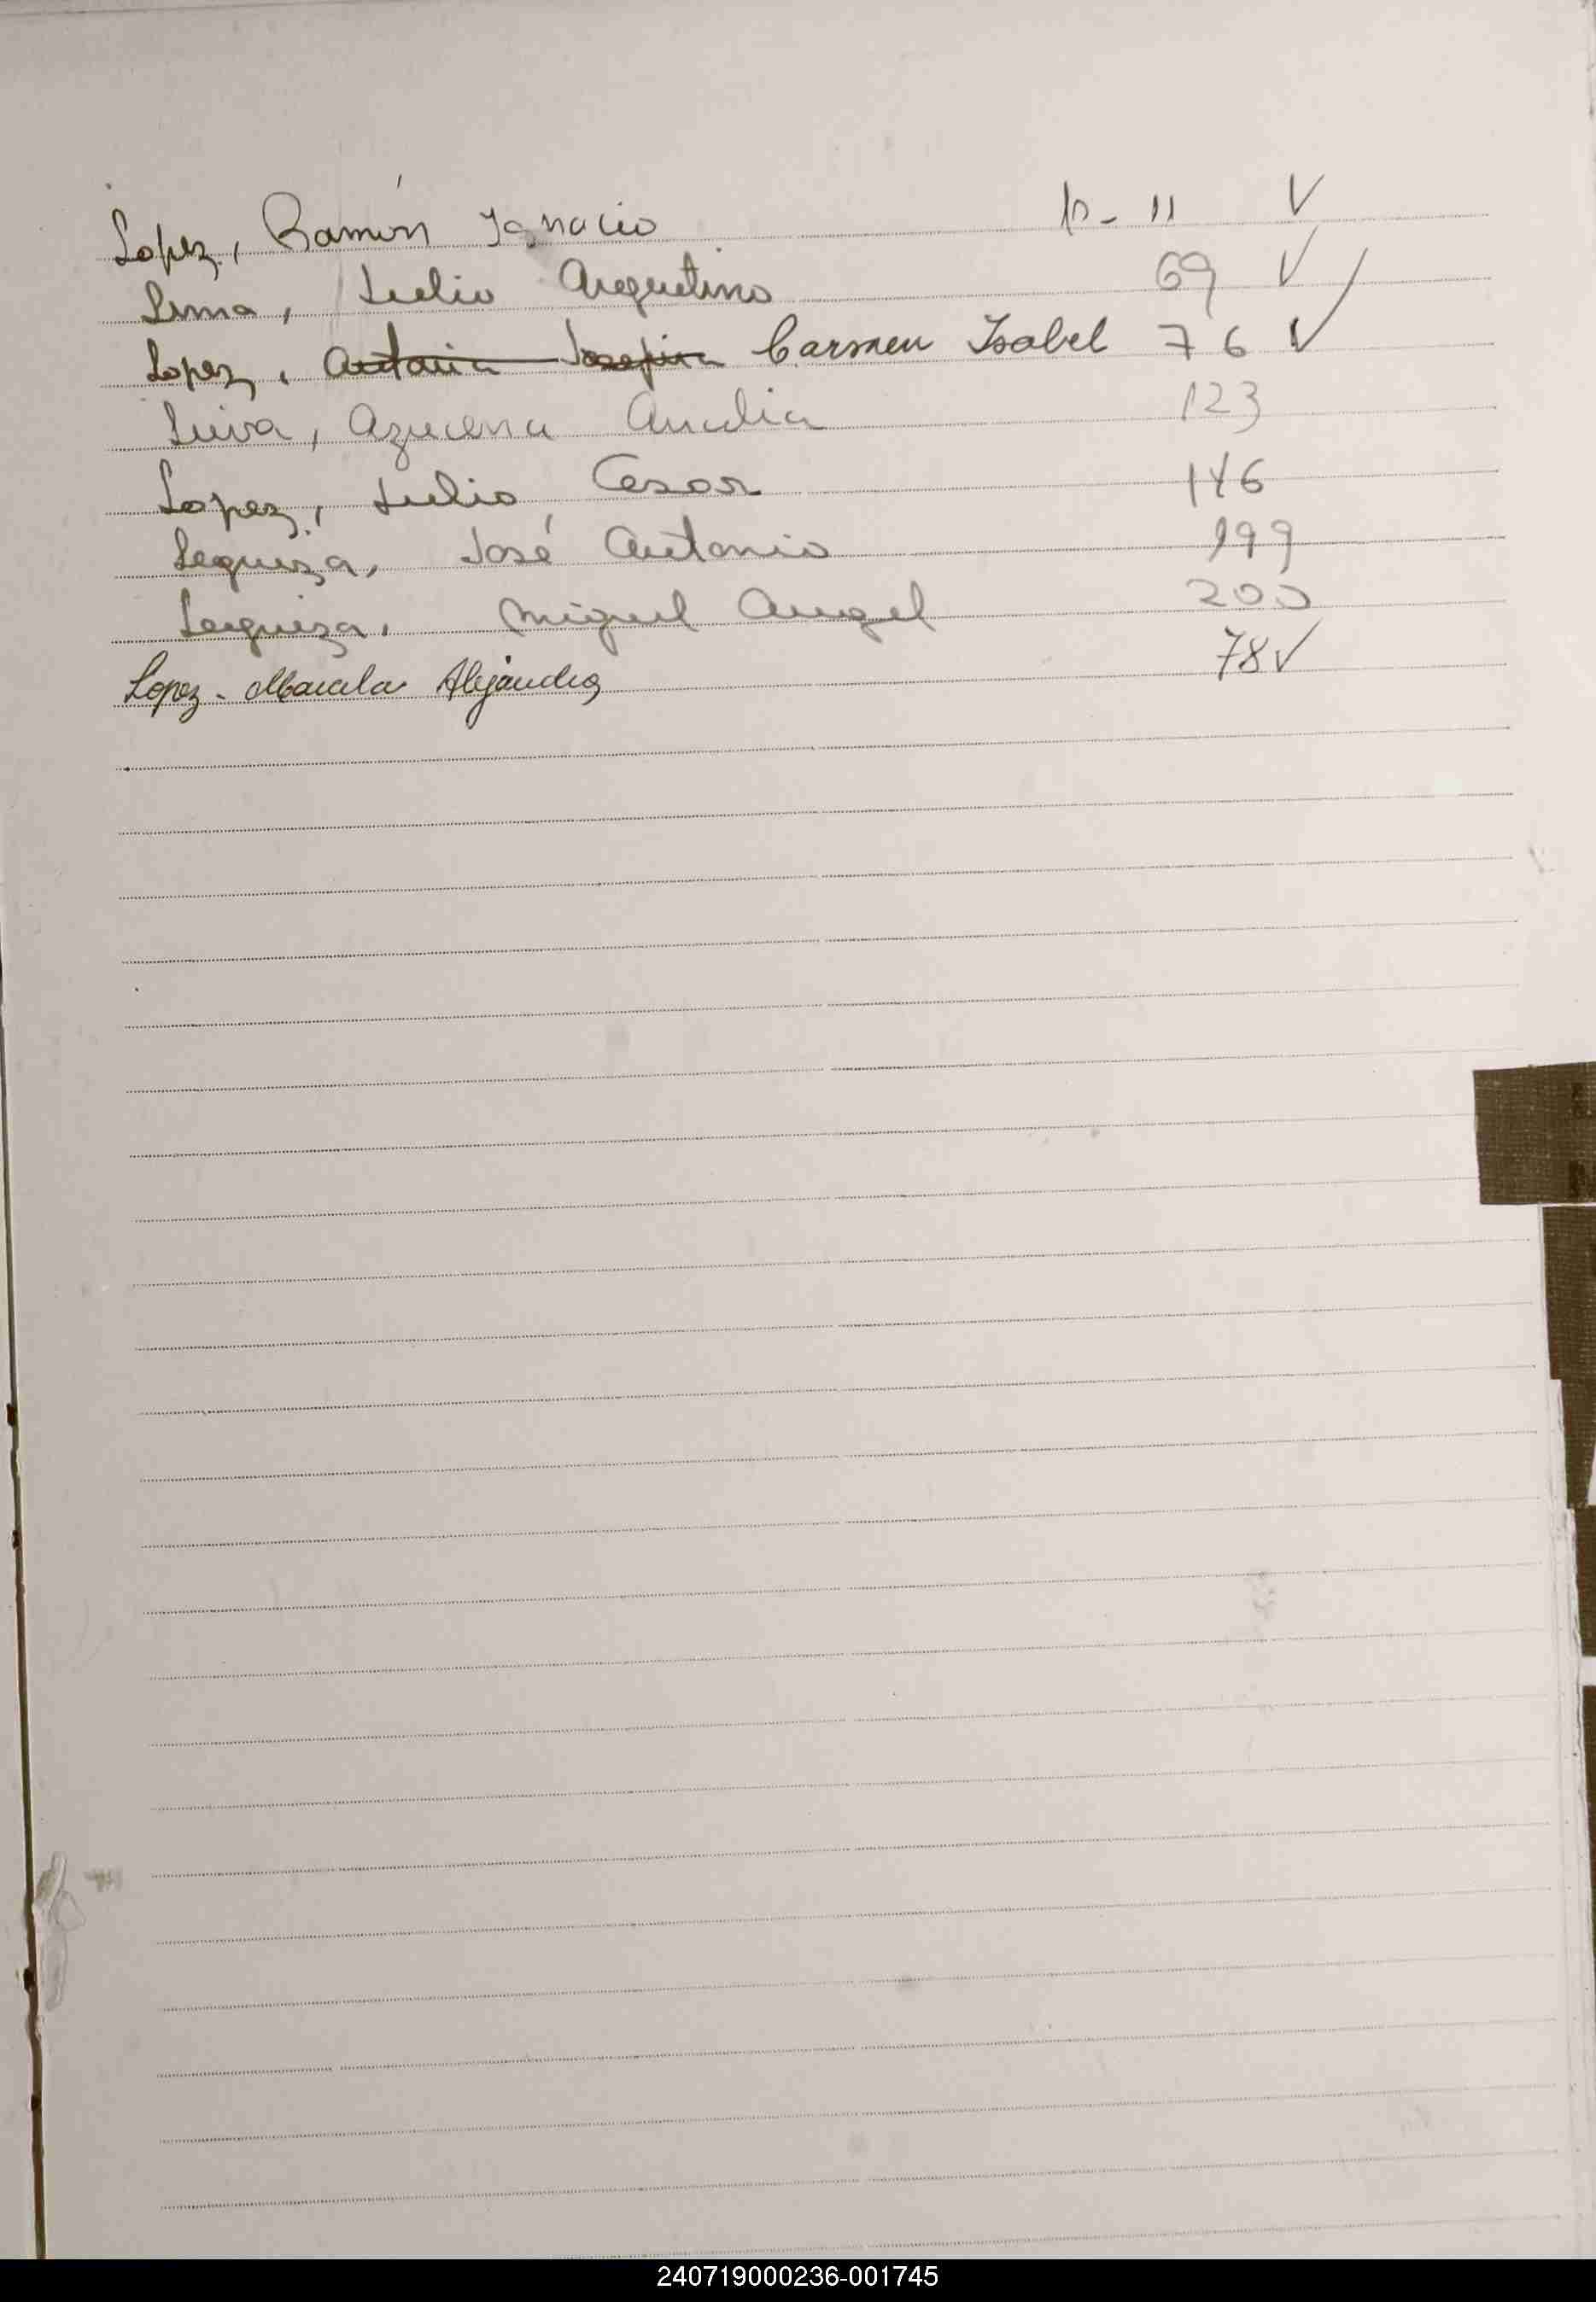 Lopez, Ramón Ignacio 10-11 ✓
Lima, Julio Argentino 69 ✓
Lopez, Antonia Josefina Carmen Isabel 76 ✓
Luiva, Azucena Analia 123
Lopez, Julio Cesar 146
Leguiza, José Antonio 199
Leguiza, Miguel Angel 200
Lopez - Marcela Alejandra 78 ✓
240719000236-001745